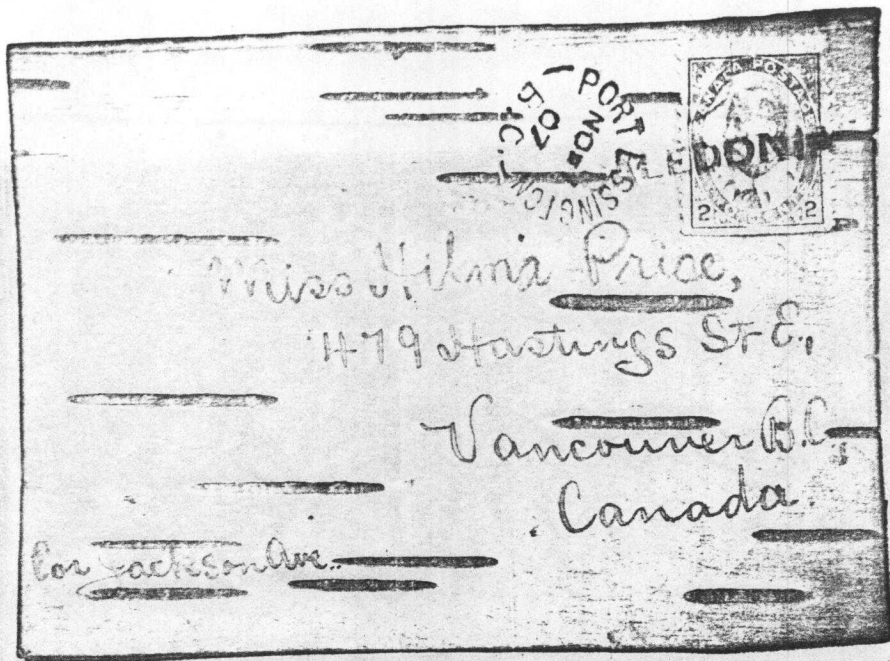 PORT ESSINGTON B.C.
NO
07
LEDONIA
CANADA POSTAGE
2 2
Miss Hilma Price,
479 Hastings St E.,
Vancouver B.C.,
Canada.
Cor Jackson Ave.